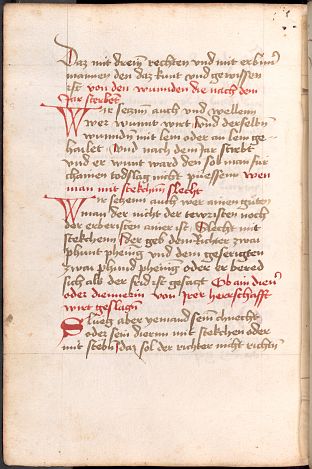 Daz mit dreinn rechten und mit erbinn
mannen den daz kunt und gewissen
ist von den wunnden die nach dem
Jar sterbent
Wir seczenn auch und wellenn
wer wunnt wirt und derselbn
wunndn mit lem oder an lem ge-
hailet Und nach dem Jar stirbt
und er wunt ward den sol man fur
chainen todslag nicht püessenn wen
man mit stekchnn slecht
Wir sehenn auch wer ainen guten
man der nicht der tewristen noch
der erbersten ainer ist Slecht mit
stekchenn der geb dem Richter zwai
phunt phenig und dem geserigten
zwai phund phening oder er bered
sich alb der seid ist gesagt Ob ain dienr
oder diennerin von irer herrschafft
wirt geslagn
Slueg aber yemand sein chnecht
oder sein diernn mit stekchen oder
mit stebn daz sol der richter nicht richtn